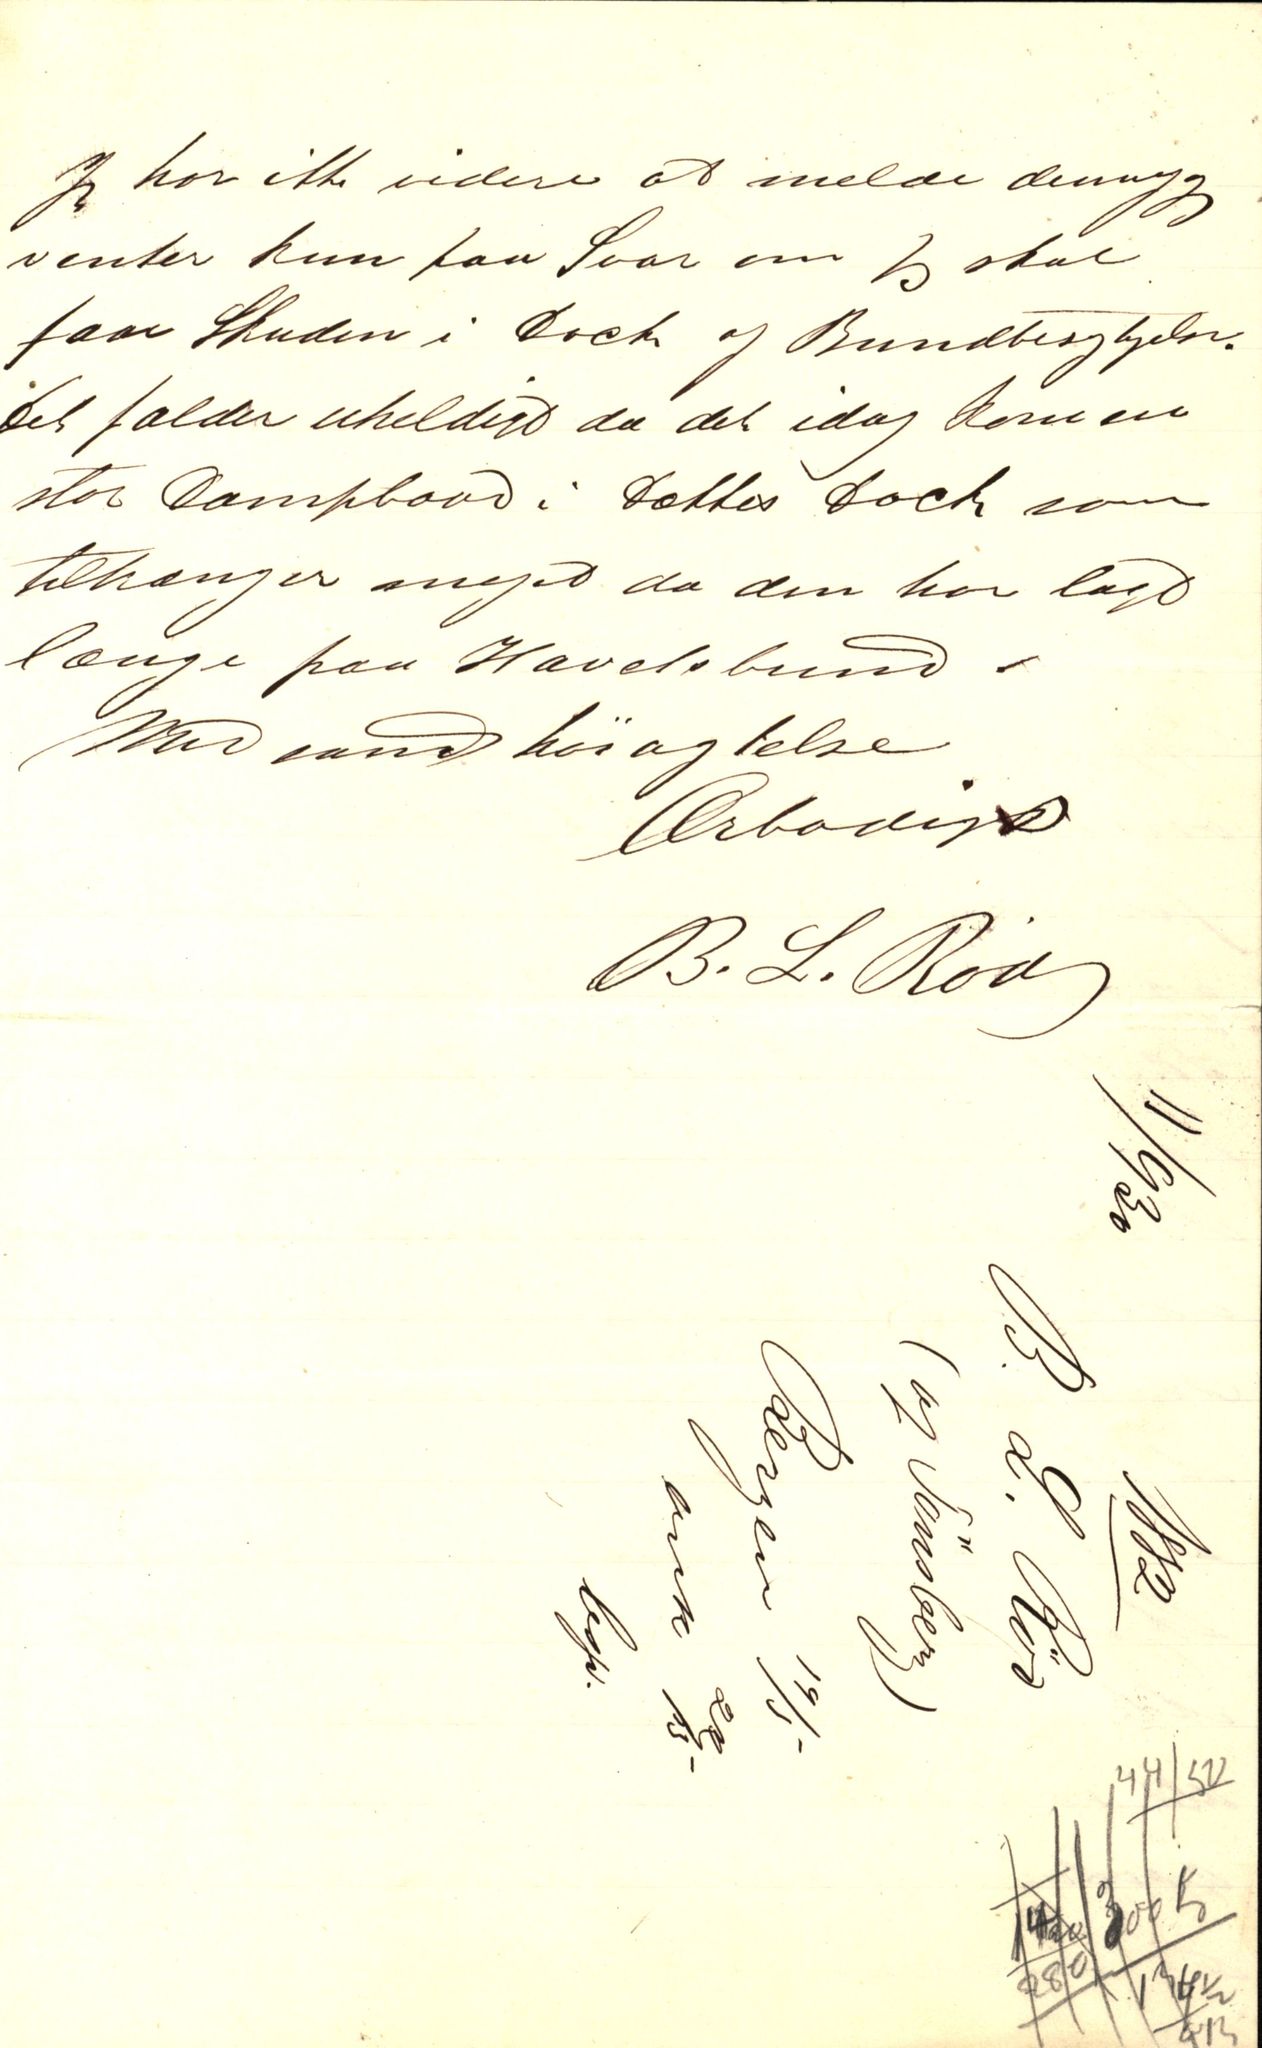 Jeg har ikke videre at melde denne gg
venter kun faa Svar om Jeg skal
faar Skuden i Dock og Bundbesigtigelse.
det falder uheldigt da det idag kom en
stor Dampbaad i Dock som
tiltrænger meget da den har lagt
længe paa Havetsbund.
Med sand höiagtelse
Ærbødigst
B. L. Röd
11/9 20
1882
B. L. Röd
(af Tönsberg)
Bergen 19/5-
ank 22/5-
besv.
44/52
300
280